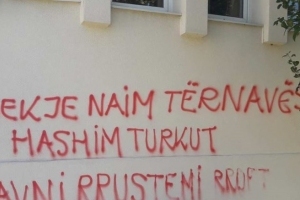 EKJE NAIM TËRNAVËS
HASHIM TURKUT
AVNI RRUSTEMI RROFT